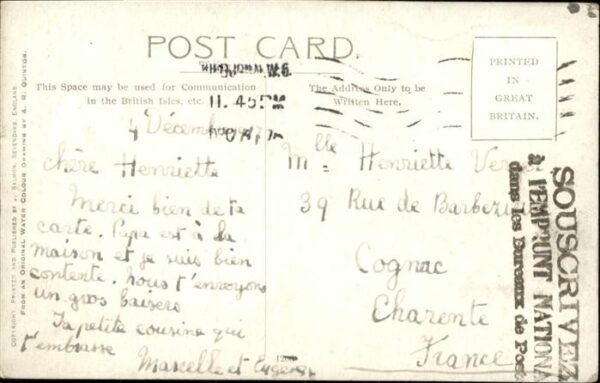 POST CARD.
This Space may be used for Communication
in the British Isles, etc.
The Address Only to be
Written Here.
PRINTED
IN
GREAT
BRITAIN.
11.45 PM
4 Décembre
Chère Henriette
Merci bien de ta
carte. Papa est à la
maison et je suis bien
contente. nous t'envoyons
un gros baisers
Ta petite cousine qui
t'embrasse
Marcelle et
Mlle Henriette
39 Rue de
Cognac
Charente
France
SOUSCRIVEZ
à l'EMPRUNT NATIONA
dans les Bureaux de Post
COPYRIGHT. PRINTED AND PUBLISHED BY J. SALMON, SEVENOAKS, ENGLAND.
FROM AN ORIGINAL WATER COLOUR DRAWING BY A. R. QUINTON.